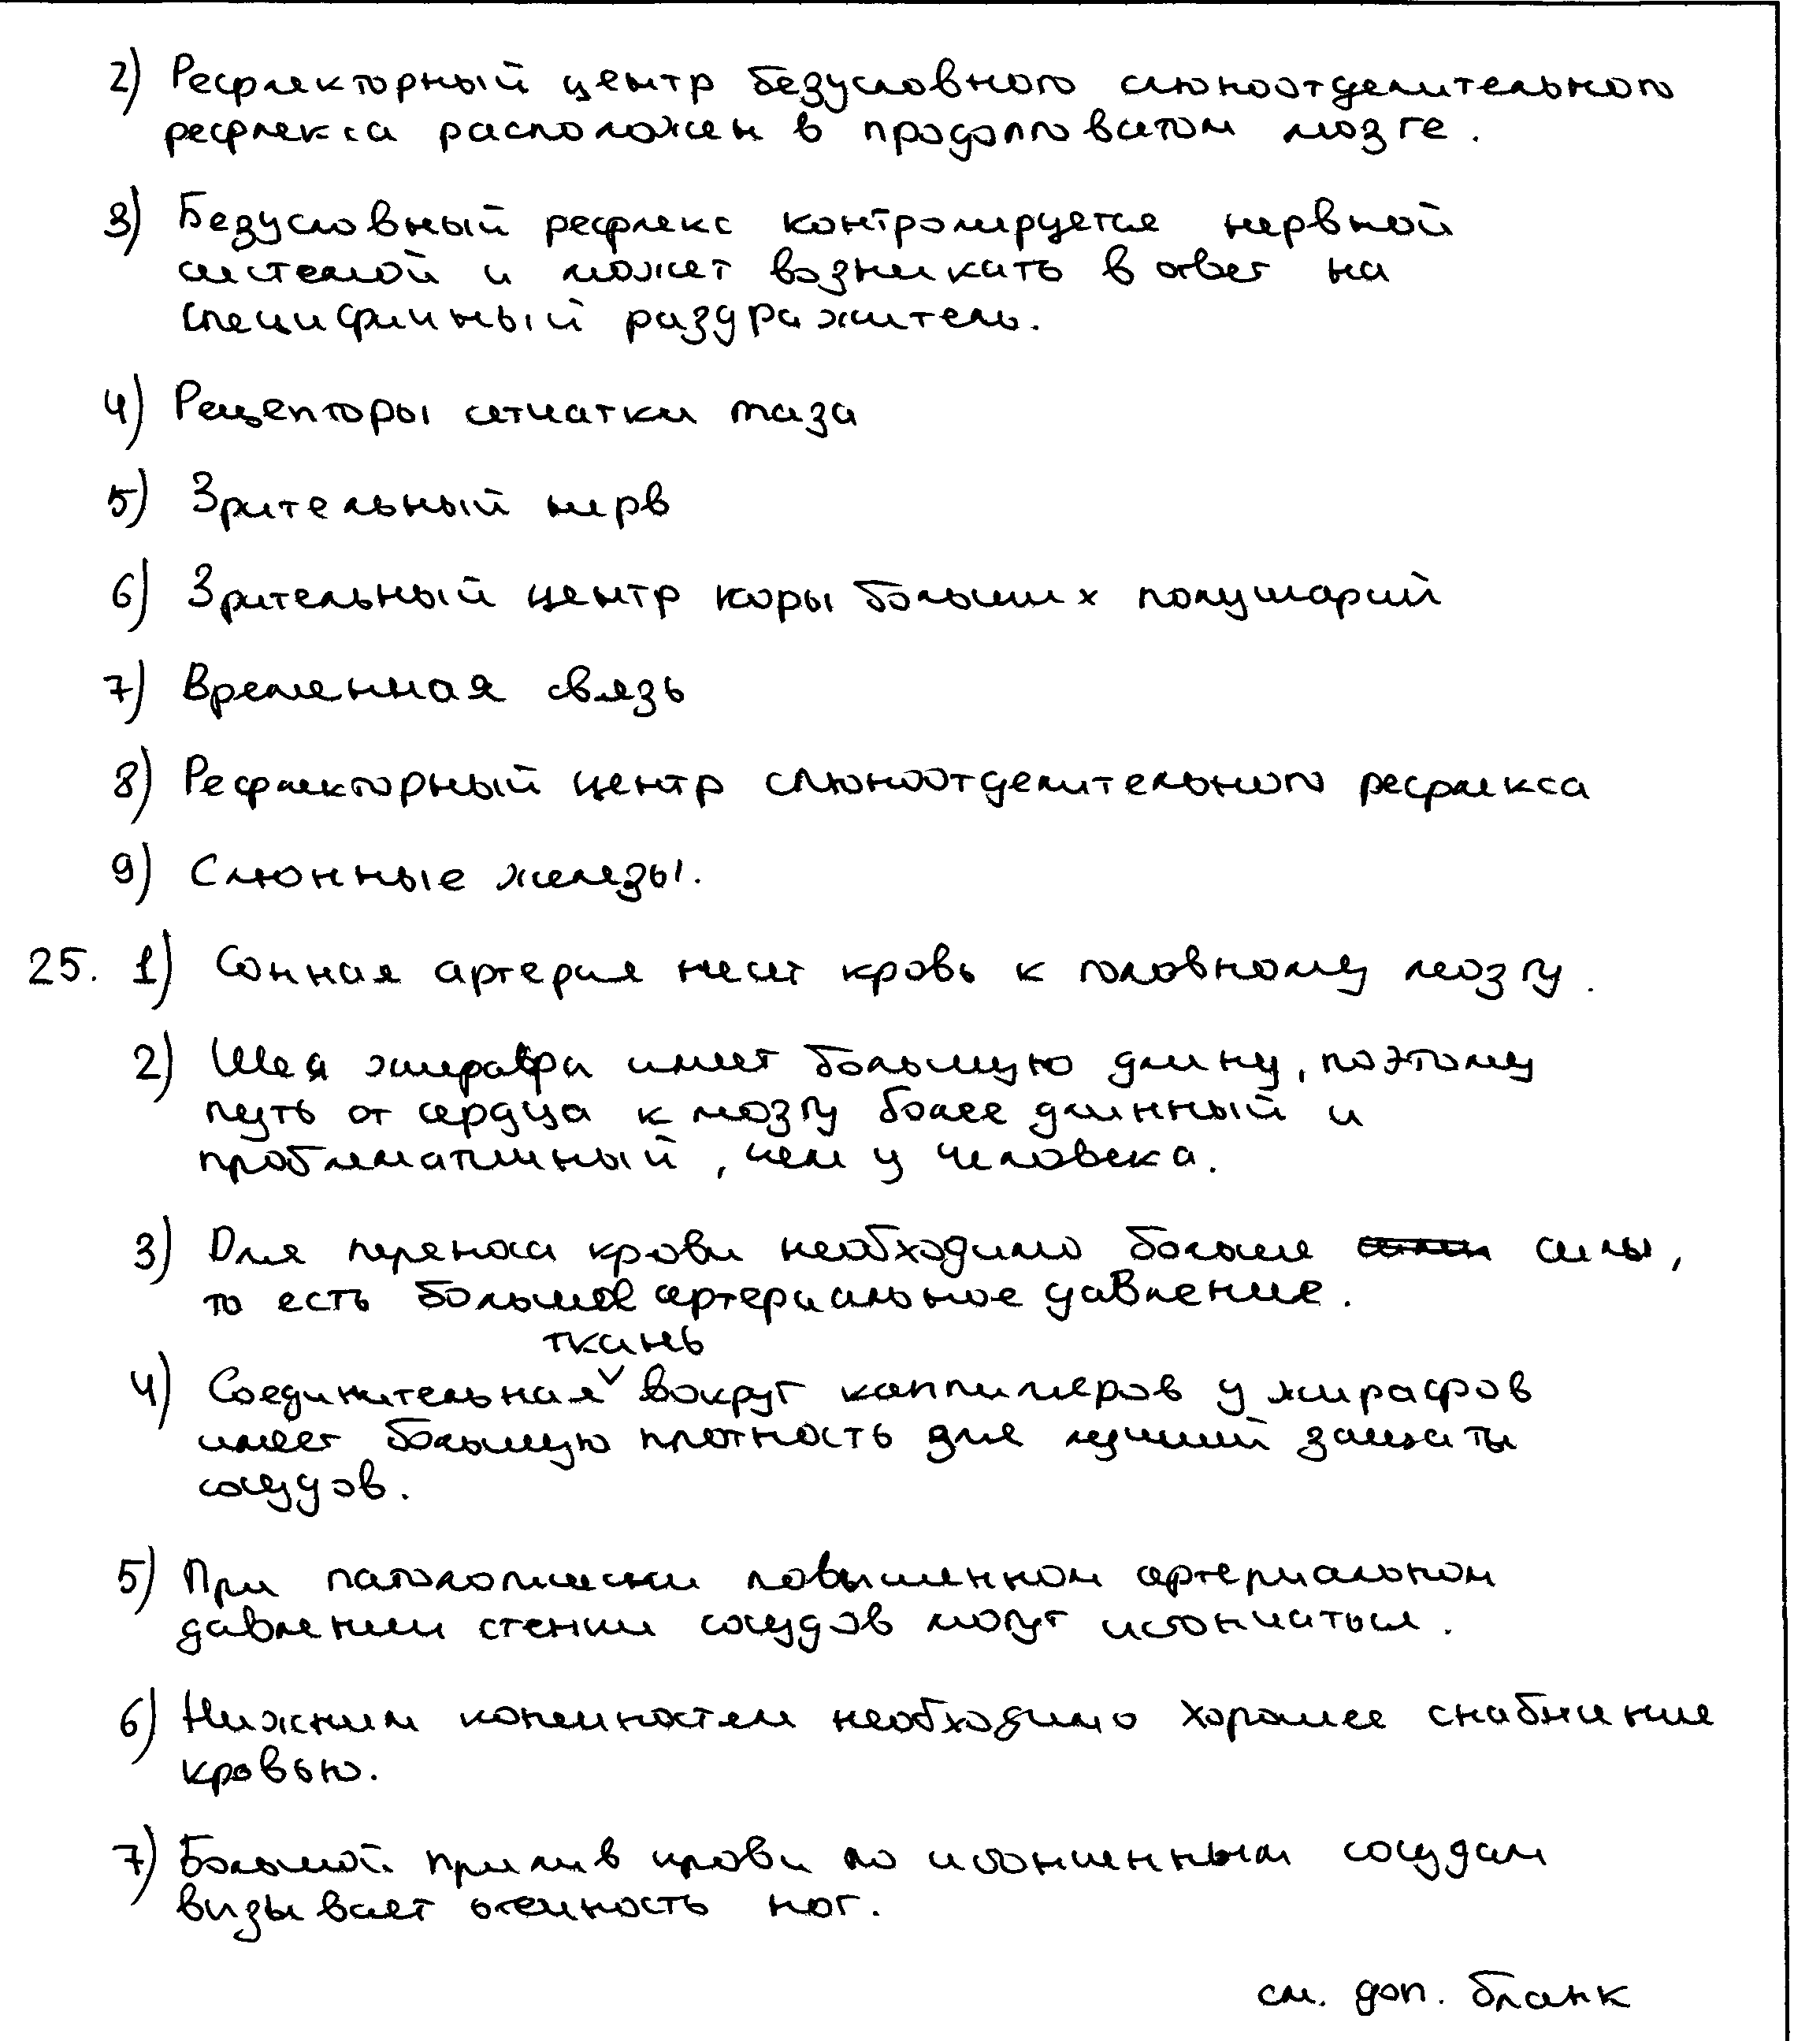 2) Рефлекторный центр безусловного слюноотделительного
рефлекса расположен в продолговатом мозге.
3) Безусловный рефлекс контролируется нервной
системой и может возникать в ответ на
специфичный раздражитель.
4) Рецепторы сетчатки глаза
5) Зрительный нерв
6) Зрительный центр коры больших полушарий
7) Временная связь
8) Рефлекторный центр слюноотделительного рефлекса
9) Слюнные железы.
25. 1) Сонная артерия несет кровь к головному мозгу.
2) Шея жирафа имеет большую длину, поэтому
путь от сердца к мозгу более длинный и
проблематичный, чем у человека.
3) Для переноса крови необходимо больше силы,
то есть большое артериальное давление.
ткань
4) Соединительная вокруг капилляров у жирафов
имеет большую плотность для лучшей защиты
сосудов.
5) При патологически повышенном артериальном
давлении стенки сосудов могут истончаться.
6) Нижним конечностям необходимо хорошее снабжение
кровью.
7) Большой прилив крови по истонченным сосудам
вызывает отечность ног.
см. доп. бланк